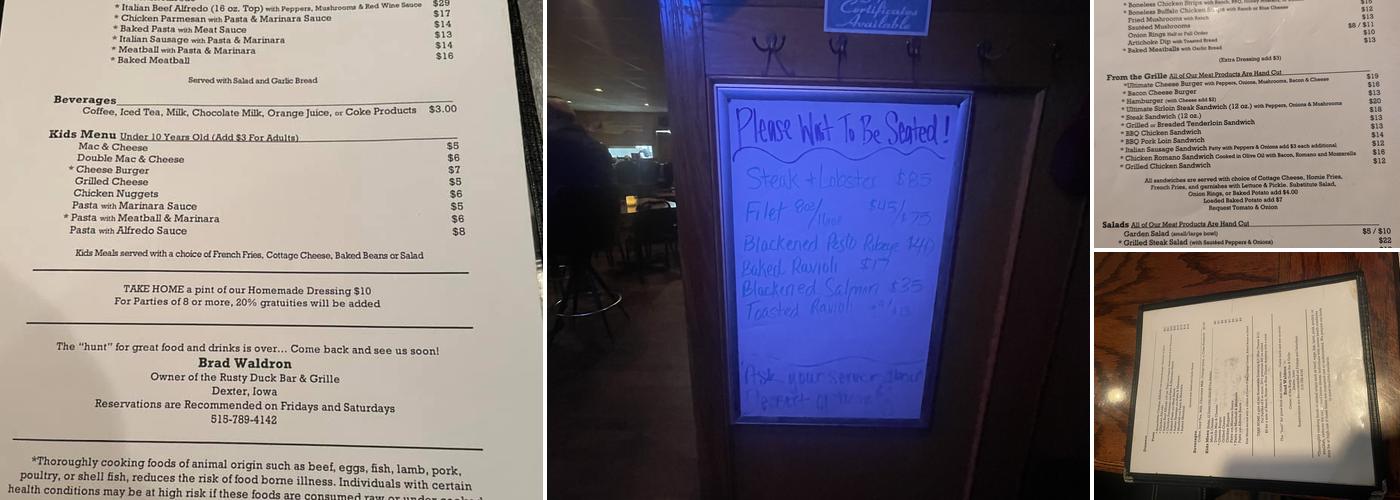 * Italian Beef Alfredo (16 oz. Top) with Peppers, Mushrooms & Red Wine Sauce $29
* Chicken Parmesan with Pasta & Marinara Sauce $17
* Baked Pasta with Meat Sauce $14
* Italian Sausage with Pasta & Marinara $13
* Meatball with Pasta & Marinara $14
* Baked Meatball $16
Served with Salad and Garlic Bread
Beverages
Coffee, Iced Tea, Milk, Chocolate Milk, Orange Juice, or Coke Products $3.00
Kids Menu Under 10 Years Old (Add $3 For Adults)
Mac & Cheese $5
Double Mac & Cheese $6
* Cheese Burger $7
Grilled Cheese $5
Chicken Nuggets $6
Pasta with Marinara Sauce $5
* Pasta with Meatball & Marinara $6
Pasta with Alfredo Sauce $8
Kids Meals served with a choice of French Fries, Cottage Cheese, Baked Beans or Salad
TAKE HOME a pint of our Homemade Dressing $10
For Parties of 8 or more, 20% gratuities will be added
The "hunt" for great food and drinks is over... Come back and see us soon!
Brad Waldron
Owner of the Rusty Duck Bar & Grille
Dexter, Iowa
Reservations are Recommended on Fridays and Saturdays
515-789-4142
*Thoroughly cooking foods of animal origin such as beef, eggs, fish, lamb, pork,
poultry, or shell fish, reduces the risk of food borne illness. Individuals with certain
health conditions may be at high risk if these foods are consumed raw or under cooked
Certificates
Available
Please Wait To Be Seated!
Steak + Lobster $85
Filet 8oz/ $45/
$75
Blackened Pesto Ribeye $40
Baked Ravioli $17
Blackened Salmon $35
Toasted Ravioli
Ask your server about
* Boneless Chicken Strips with Ranch, BBQ,
* Boneless Buffalo Chicken Strips with Ranch or Blue Cheese
Fried Mushrooms with Ranch $12
Sautéed Mushrooms $13
Onion Rings Half or Full Order $8 / $11
Artichoke Dip with Toasted Bread $10
* Baked Meatballs with Garlic Bread $13
(Extra Dressing add $3)
From the Grille All of Our Meat Products Are Hand Cut
*Ultimate Cheese Burger with Peppers, Onions, Mushrooms, Bacon & Cheese $19
* Bacon Cheese Burger $16
* Hamburger (with Cheese add $2) $13
* Ultimate Sirloin Steak Sandwich (12 oz.) with Peppers, Onions & Mushrooms $20
* Steak Sandwich (12 oz.) $18
* Grilled or Breaded Tenderloin Sandwich $13
* BBQ Chicken Sandwich $13
* BBQ Pork Loin Sandwich $14
* Italian Sausage Sandwich Patty with Peppers & Onions add $3 each additional $12
* Chicken Romano Sandwich Cooked in Olive Oil with Bacon, Romano and Mozzarella $16
* Grilled Chicken Sandwich $12
All sandwiches are served with choice of Cottage Cheese, Homie Fries,
French Fries, and garnishes with Lettuce & Pickle. Substitute Salad,
Onion Rings, or Baked Potato add $4.00
Loaded Baked Potato add $7
Request Tomato & Onion
Salads All of Our Meat Products Are Hand Cut
Garden Salad (small/large bowl) $8 / $10
* Grilled Steak Salad (with Sautéed Peppers & Onions) $22